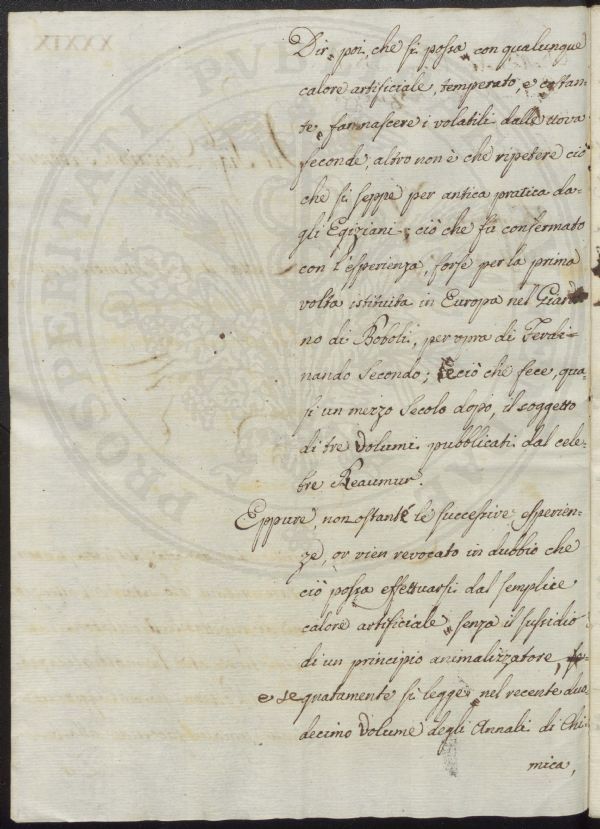 XXXIX
Dir poi, che si possa con qualunque
calore artificiale, temperato, e costan-
te, far nascere i volatili dalle uova
feconde, altro non è che ripetere ciò
che si seppe per antica pratica da-
gli Egiziani; ciò che fu confermato
con l'esperienza, forse per la prima
volta istituita in Europa nel Giardi
no di Boboli, per opra di Ferdi-
nando Secondo; e ciò che fece, qua-
si un mezzo Secolo dopo, il soggetto
di tre Volumi pubblicati dal cele-
bre Reaumur.
Eppure, non ostante le successive esperien-
ze, or vien revocato in dubbio che
ciò possa effettuarsi dal semplice
calore artificiale senza il sussidio
di un principio animalizzatore,
e segnatamente si legge nel recente duo
decimo Volume degli Annali di Chi-
mica,
PROSPERITATI PVB